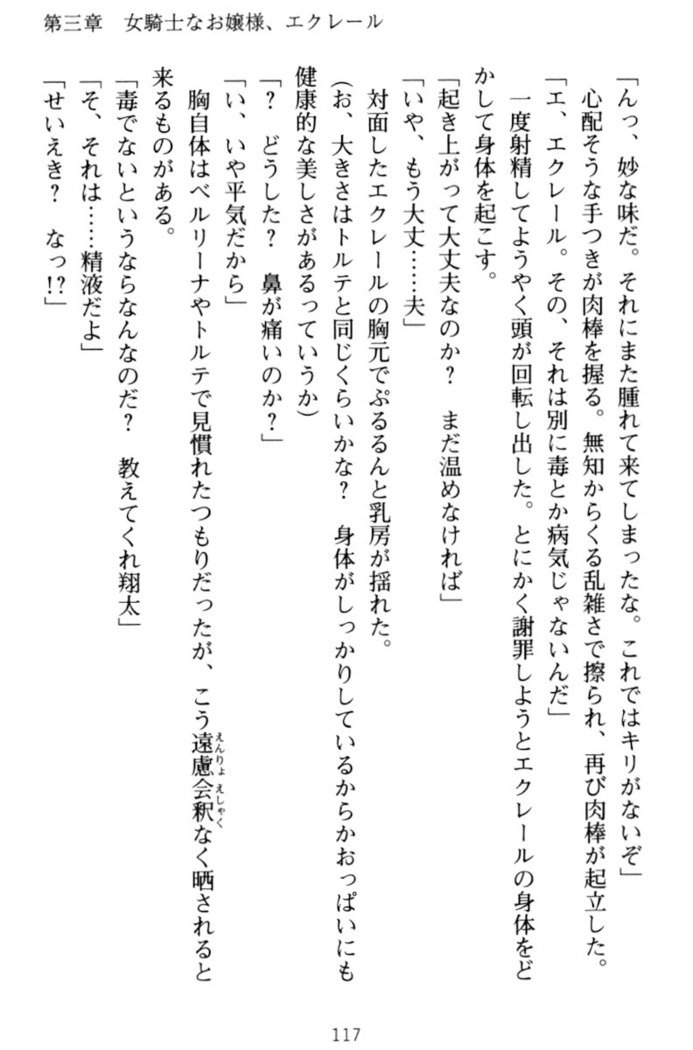 第三章　女騎士なお嬢様、エクレール
「んっ、妙な味だ。それにまた腫れて来てしまったな。これではキリがないぞ」
心配そうな手つきが肉棒を握る。無知からくる乱雑さで擦られ、再び肉棒が起立した。
「エ、エクレール。その、それは別に毒とか病気じゃないんだ」
一度射精してようやく頭が回転し出した。とにかく謝罪しようとエクレールの身体をど
かして身体を起こす。
「起き上がって大丈夫なのか？　まだ温めなければ」
「いや、もう大丈……夫」
対面したエクレールの胸元でぷるるんと乳房が揺れた。
(お、大きさはトルテと同じくらいかな？　身体がしっかりしているからかおっぱいにも
健康的な美しさがあるっていうか)
「？　どうした？　鼻が痛いのか？」
「い、いや平気だから」
胸自体はベルリーナやトルテで見慣れたつもりだったが、こう遠慮会釈なく晒されると
えんりょ えしゃく
来るものがある。
「毒でないというならなんなのだ？　教えてくれ翔太」
「そ、それは……精液だよ」
「せいえき？　なっ!?」
117